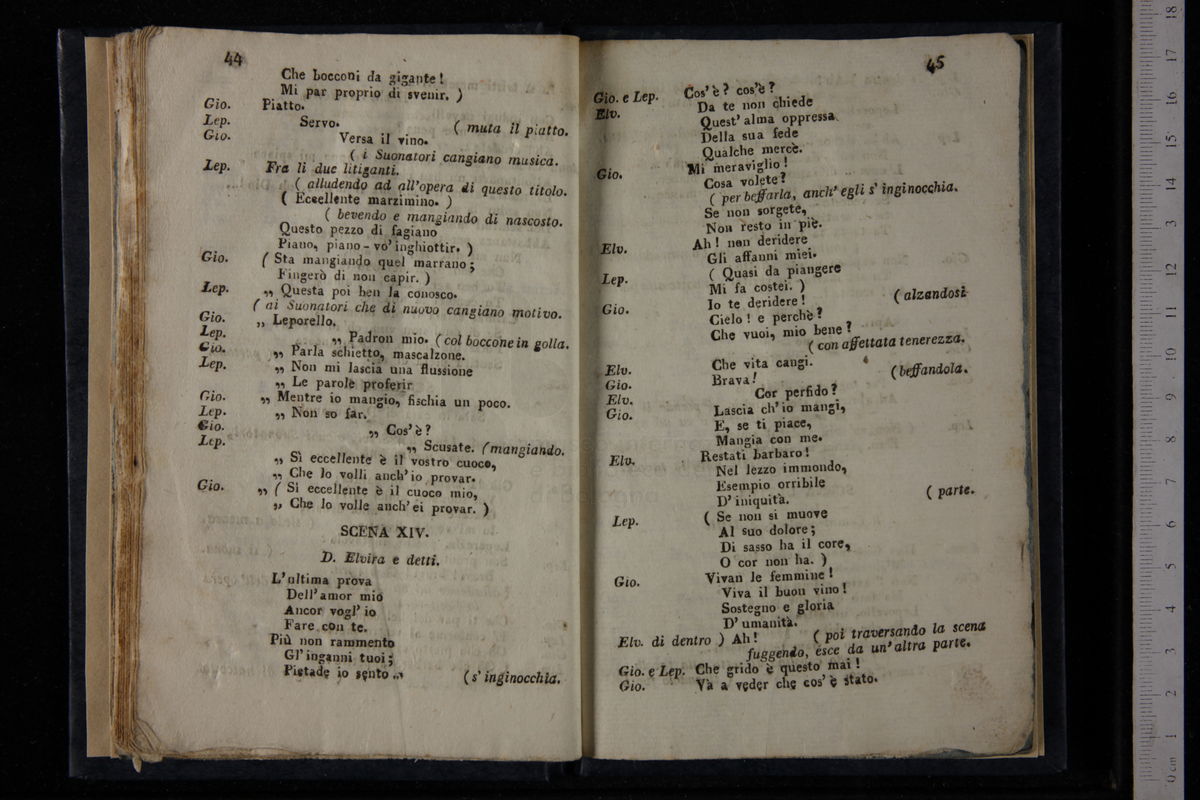 44
Che bocconi da gigante!
Mi par proprio di svenir. )
Gio. Piatto.
Lep. Servo. ( muta il piatto.
Gio. Versa il vino.
( i Suonatori cangiano musica.
Lep. Fra li due litiganti.
( alludendo ad all'opera di questo titolo.
( Eccellente marzimino. )
( bevendo e mangiando di nascosto.
Questo pezzo di fagiano
Piano, piano - vo' inghiottir. )
Gio. ( Sta mangiando quel marrano;
Fingerò di non capir. )
Lep. „ Questa poi ben la conosco.
( ai Suonatori che di nuovo cangiano motivo.
Gio. „ Leporello.
Lep. „ Padron mio. ( col boccone in golla.
Gio. „ Parla schietto, mascalzone.
Lep. „ Non mi lascia una flussione
„ Le parole proferir
Gio. „ Mentre io mangio, fischia un poco.
Lep. „ Non so far.
Gio. „ Cos' è?
Lep. „ Scusate. ( mangiando.
„ Sì eccellente è il vostro cuoco,
„ Che lo volli anch' io provar.
Gio. „ ( Sì eccellente è il cuoco mio,
„ Che lo volle anch' ei provar. )
SCENA XIV.
D. Elvira e detti.
L'ultima prova
Dell' amor mio
Ancor vogl' io
Fare con te.
Più non rammento
Gl' inganni tuoi;
Pietade io sento „ ( s' inginocchia.
45
Gio. e Lep. Cos' è? cos'è?
Elv. Da te non chiede
Quest' alma oppressa
Della sua fede
Qualche mercè.
Gio. Mi meraviglio!
Cosa volete?
( per beffarla, anch' egli s' inginocchia.
Se non sorgete,
Non resto in piè.
Elv. Ah! non deridere
Gli affanni miei.
Lep. ( Quasi da piangere
Mi fa costei. )
Gio. Io te deridere! ( alzandosi
Cielo! e perchè?
Che vuoi, mio bene?
( con affettata tenerezza.
Elv. Che vita cangi.
Gio. Brava! ( beffandola.
Elv. Cor perfido?
Gio. Lascia ch' io mangi,
E, se ti piace,
Mangia con me.
Elv. Restati barbaro!
Nel lezzo immondo,
Esempio orribile
D' iniquità. ( parte.
Lep. ( Se non si muove
Al suo dolore;
Di sasso ha il core,
O cor non ha. )
Gio. Vivan le femmine!
Viva il buon vino!
Sostegno e gloria
D' umanità.
Elv. di dentro ) Ah! ( poi traversando la scena
fuggendo, esce da un' altra parte.
Gio. e Lep. Che grido è questo mai!
Gio. Và a veder che cos' è stato.
0 cm 1 2 3 4 5 6 7 8 9 10 11 12 13 14 15 16 17 18